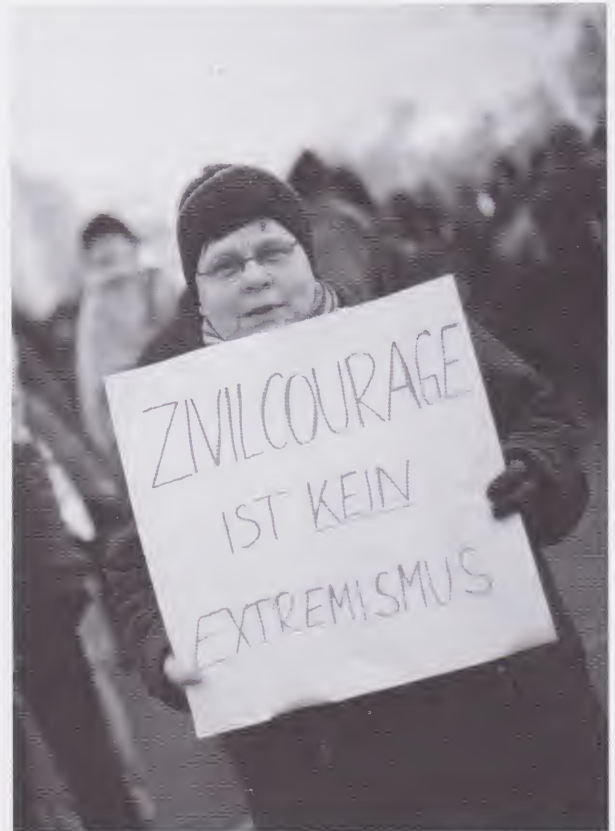 ZIVILCOURAGE
IST KEIN
EXTREMISMUS